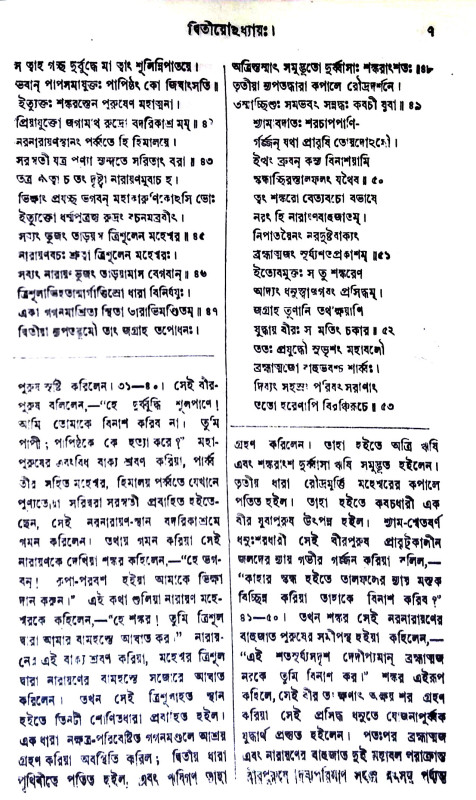 দ্বিতীয়োঽধ্যায়ঃ।
৭
স ত্বাহ গচ্ছ দুর্বুদ্ধে মা ত্বাং শূলিন্নিপাতয়ে।
ভবান্ পাপসমাযুক্তঃ পাপিষ্ঠং কো জিঘাংসতি॥
ইত্যুক্তঃ শঙ্করস্তেন পুরুষেণ মহাত্মনা।
প্রিয়াযুক্তো জগামাথ রুদ্রো বদরিকাশ্রমম্॥ ৪২
নরনারায়ণস্থানং পর্ব্বতে হি হিমালয়ে।
সরস্বতী যত্র পুণ্যা স্যন্দতে সরিতাং বরা॥ ৪৩
তত্র গত্বা চ তং দৃষ্ট্বা নারায়ণমুবাচ হ।
ভিক্ষাং প্রযচ্ছ ভগবন্ মহাকারুণিকোঽসি ভোঃ
ইত্যুক্তো ধর্ম্মপুত্রস্তু রুদ্রং বচনমব্রবীৎ।
সব্যং ভুজং তাড়য়স্ব ত্রিশূলেন মহেশ্বর॥ ৪৫
নারায়ণবচঃ শ্রুত্বা ত্রিশূলেন মহেশ্বরঃ।
সব্যং নারায়ণভুজং তাড়য়ামাস বেগবান্॥ ৪৬
ত্রিশূলাভিহতান্মার্গাত্তিস্রো ধারা বিনির্যযুঃ।
একা গগনমাশ্রিত্য স্থিতা তারাভিমণ্ডিতম্॥ ৪৭
দ্বিতীয়া ন্যপতদ্ভূমৌ তাং জগ্রাহ তপোধনঃ।
পুরুষ সৃষ্টি করিলেন। ৩১—৪০। সেই বীর-
পুরুষ বলিলেন,—“হে দুর্ব্বুদ্ধি শূলপাণে!
আমি তোমাকে বিনাশ করিব না। তুমি
পাপী; পাপিষ্ঠকে কে হত্যা করে?” মহা-
পুরুষের এবংবিধ বাক্য শ্রবণ করিয়া, পার্ব্ব-
তীর সহিত মহেশ্বর, হিমালয় পর্ব্বতে যেখানে
পুণ্যতোয়া সরিদ্বরা সরস্বতী প্রবাহিত হইতে-
ছেন, সেই নরনারায়ণ-স্থান বদরিকাশ্রমে
গমন করিলেন। তথায় গমন করিয়া সেই
নারায়ণকে দেখিয়া শঙ্কর কহিলেন,—“হে ভগ-
বন্! কৃপা-পরবশ হইয়া আমাকে ভিক্ষা
দান করুন।” এই কথা শুনিয়া নারায়ণ মহে-
শ্বরকে কহিলেন,—“হে শঙ্কর! তুমি ত্রিশূল
দ্বারা আমার বামহস্তে আঘাত কর।” নারায়-
ণের এই বাক্য শ্রবণ করিয়া, মহেশ্বর ত্রিশূল
দ্বারা নারায়ণের বামহস্তে সজোরে আঘাত
করিলেন। তখন সেই ত্রিশূলাহত স্থান
হইতে তিনটী শোণিতধারা প্রবাহিত হইল।
এক ধারা নক্ষত্র-পরিবেষ্টিত গগনমণ্ডলে আশ্রয়
গ্রহণ করিয়া অবস্থিতি করিল; দ্বিতীয় ধারা
পৃথিবীতে পতিত হইল, এবং ঋষিগণ তাহা
অত্রিস্তস্মাৎ সমুদ্ভূতো দুর্ব্বাসাঃ শঙ্করাংশতঃ॥৪৮
তৃতীয়া ন্যপতদ্ধারা কপালে রৌদ্রদর্শনে।
তস্মাচ্ছিশুঃ সমভবৎ সন্নদ্ধঃ কবচী যুবা॥ ৪৯
শ্যামাবদাতঃ শরচাপপাণি-
র্গর্জ্জন্ যথা প্রাবৃষি তোয়দোঽসৌ।
ইত্থং ব্রুবন্ কস্য বিনাশয়ামি
স্কন্ধাচ্ছিরস্তালফলং যথৈব॥ ৫০
তং শঙ্করো বেত্যবচো বভাষে
নরং হি নারায়ণবাহুজাতম্।
নিপাতয়ৈনং নরদুষ্টবাক্যং
ব্রহ্মাত্মজং সূর্য্যশতপ্রকাশম্॥৫১
ইত্যেবমুক্তঃ স তু শঙ্করেণ
আদ্যং ধনুস্ত্বাজগবং প্রসিদ্ধম্।
জগ্রাহ তূণানি তথাক্ষয়াণি
যুদ্ধায় বীরঃ স মতিং চকার॥ ৫২
ততঃ প্রযুদ্ধৌ সুভৃশং মহাবলৌ
ব্রহ্মাত্মজো বাহুভবশ্চ শার্ব্বঃ।
দিব্যং সহস্রং পরিবৎসরাণাং
ততো হরেণাপি বিরঞ্চিরূচে॥ ৫৩
গ্রহণ করিলেন। তাহা হইতে অত্রি ঋষি
এবং শঙ্করাংশ দুর্ব্বাসা ঋষি সমুদ্ভূত হইলেন।
তৃতীয় ধারা রৌদ্রমূর্ত্তি মহেশ্বরের কপালে
পতিত হইল। তাহা হইতে কবচধারী এক
বীর যুবাপুরুষ উৎপন্ন হইল। শ্যাম-শ্বেতবর্ণ
ধনুঃশরধারী সেই বীরপুরুষ প্রাবৃট্‌কালীন
জলদের ন্যায় গভীর গর্জ্জন করিয়া বলিল,—
“কাহার স্কন্ধ হইতে তালফলের ন্যায় মস্তক
বিচ্ছিন্ন করিয়া তাহাকে বিনাশ করিব?”
৪১—৫০। তখন শঙ্কর সেই নরনারায়ণের
বাহুজাত পুরুষের সমীপস্থ হইয়া কহিলেন,—
“এই শতসূর্য্যসদৃশ দেদীপ্যমান্ ব্রহ্মাত্মজ
নরকে তুমি বিনাশ কর।” শঙ্কর এইরূপ
কহিলে, সেই বীর তৎক্ষণাৎ অক্ষয় শর গ্রহণ
করিয়া সেই প্রসিদ্ধ ধনুতে যোজনাপূর্ব্বক
যুদ্ধার্থ প্রস্তুত হইলেন। পতঃপর ব্রহ্মাত্মজ
এবং নারায়ণের বাহুজাত দুই মহাবল পরাক্রান্ত
বীরপুরুষে দিব্যপরিমাণ সহস্র বৎসর পর্য্যন্ত